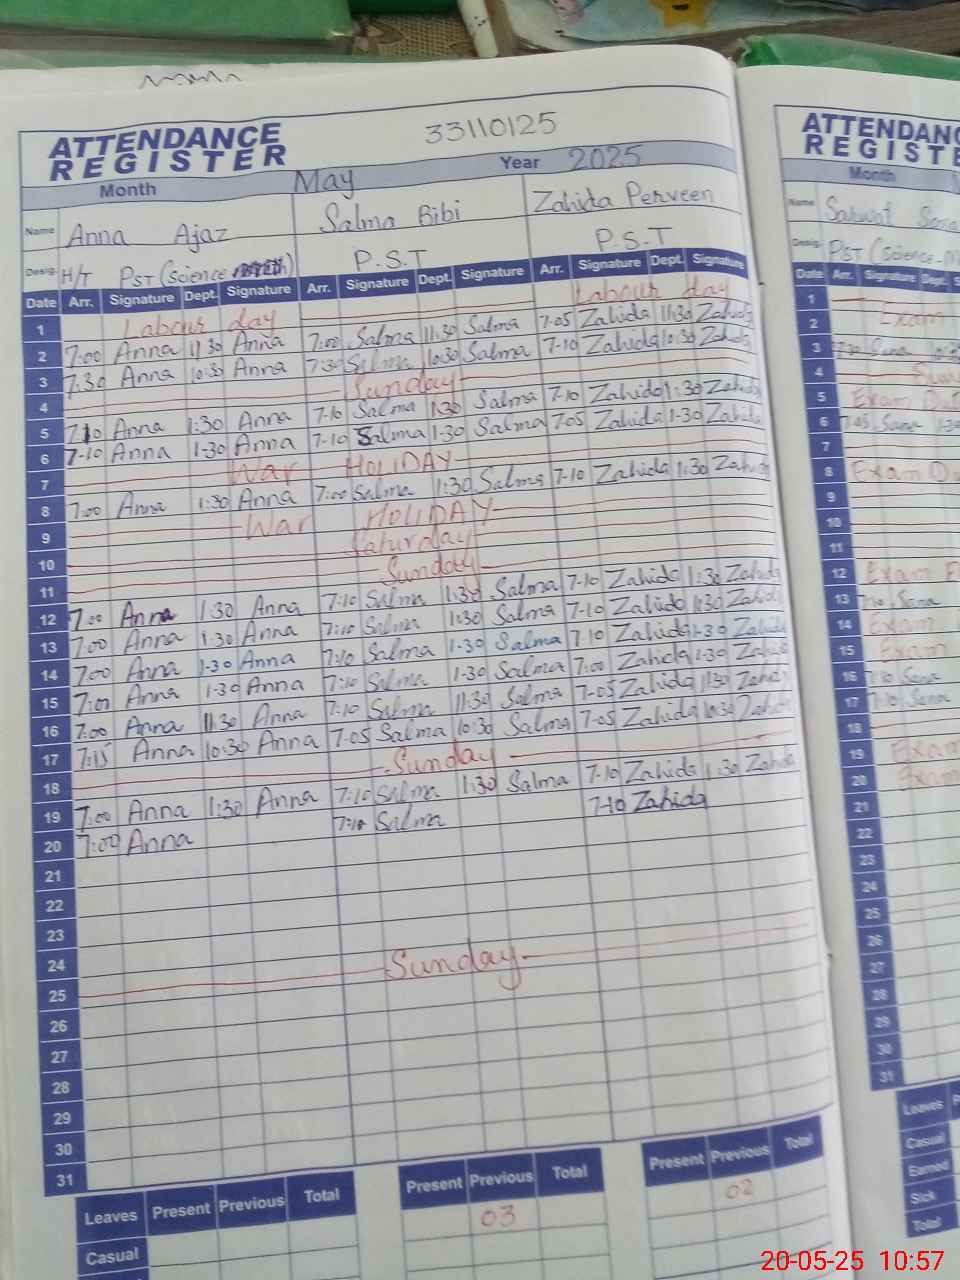 33110125
ATTENDANCE REGISTER
Month May Year 2025
Name Anna Ajaz Salma Bibi Zahida Perveen
Desig. H/T PST (science P.S.T P.S.T
Date Arr. Signature Dept. Signature Arr. Signature Dept. Signature Arr. Signature Dept. Signature
1 Labour day Labour day
2 7:00 Anna 11 30 Anna 7:00 Salma 11:30 Salma 7-05 Zahida 11:30 Zahida
3 7:30 Anna 10:30 Anna 7:30 Salma 10:30 Salma 7-10 Zahida 10:30 Zahida
4 Sunday
5 7:10 Anna 1:30 Anna 7-10 Salma 1:30 Salma 7-10 Zahida 1:30 Zahida
6 7-10 Anna 1-30 Anna 7-10 Salma 1-30 Salma 7-05 Zahida 1-30 Zahida
7 War HOLIDAY
8 7:00 Anna 1:30 Anna 7:00 Salma 1:30 Salma 7-10 Zahida 1:30 Zahida
9 War HOLIDAY
10 Saturday
11 Sunday
12 7:00 Anna 1:30 Anna 7:10 Salma 1:30 Salma 7-10 Zahida 1:30 Zahida
13 7:00 Anna 1:30 Anna 7:10 Salma 1:30 Salma 7-10 Zahida 1:30 Zahida
14 7:00 Anna 1-30 Anna 7:10 Salma 1-30 Salma 7-10 Zahida 1-30 Zahida
15 7:00 Anna 1-30 Anna 7:10 Salma 1-30 Salma 7:00 Zahida 1-30 Zahida
16 7:00 Anna 11:30 Anna 7:10 Salma 11:30 Salma 7-05 Zahida 11:30 Zahida
17 7:15 Anna 10:30 Anna 7-05 Salma 10:30 Salma 7-05 Zahida 10:30 Zahida
18 Sunday
19 7:00 Anna 1:30 Anna 7:10 Salma 1:30 Salma 7-10 Zahida 1:30 Zahida
20 7:00 Anna 7:10 Salma 7-10 Zahida
21
22
23
24
25 Sunday
26
27
28
29
30
31
Leaves Present Previous Total Present Previous Total Present Previous Total
Casual 03 02
ATTENDANC
REGISTE
Month
Name Sarwat
Desig. PST (Science-M
Date Arr. Signature Dept. S
1
2 Exam
3 7:30 Sana
4 Sun
5 Exam Dut
6 7:05 Sana 1-3
7
8 Exam Du
9
10
11
12 Exam
13 7:10 Sana
14 Exam
15 Exam
16 7:10 Sana
17 7:10 Sana
18
19 Exam
20 Exam
21
22
23
24
25
26
27
28
29
30
31
Leaves P
Casual
Earned
Sick
Total
20-05-25 10:57